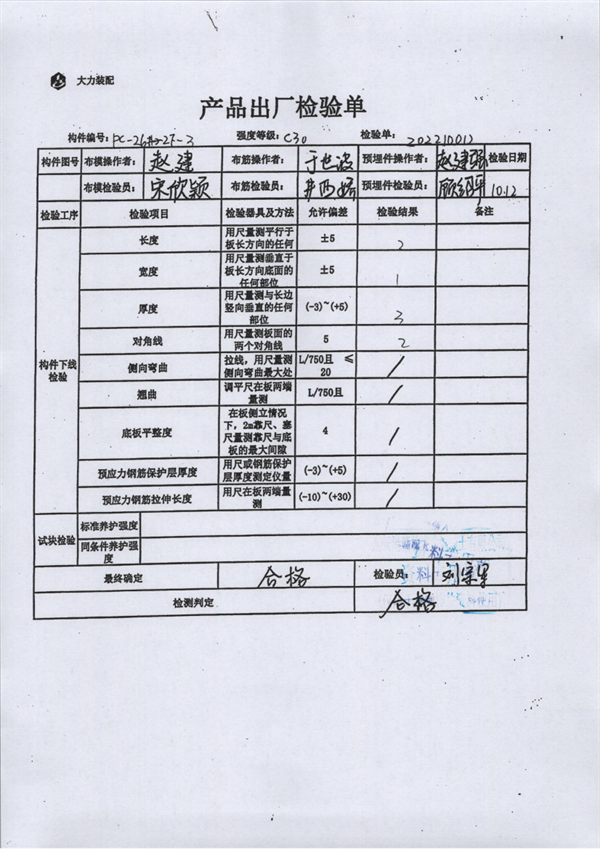 大力装配
产品出厂检验单
构件编号: PC-26#-2F-3 强度等级: C30 检验单: 202210012
构件图号 布模操作者: 赵建 布筋操作者: 于世波 预埋件操作者: 赵建强 检验日期
布模检验员: 宋欣颖 布筋检验员: 预埋件检验员: 10.12
检验工序 检验项目 检验器具及方法 允许偏差 检验结果 备注
构件下线检验
长度 用尺量测平行于板长方向的任何 ±5 2
宽度 用尺量测垂直于板长方向底面的任何部位 ±5 1
厚度 用尺量测与长边竖向垂直的任何部位 (-3)~(+5) 3
对角线 用尺量测板面的两个对角线 5 2
侧向弯曲 拉线，用尺量测侧向弯曲最大处 L/750且 ≤20 /
翘曲 调平尺在板两端量测 L/750且 /
底板平整度 在板侧立情况下，2m靠尺、塞尺量测靠尺与底板的最大间隙 4 /
预应力钢筋保护层厚度 用尺或钢筋保护层厚度测定仪量 (-3)~(+5) /
预应力钢筋拉伸长度 用尺在板两端量测 (-10)~(+30) /
试块检验 标准养护强度
同条件养护强度
最终确定 合格 检验员: 刘宗军
检测判定 合格